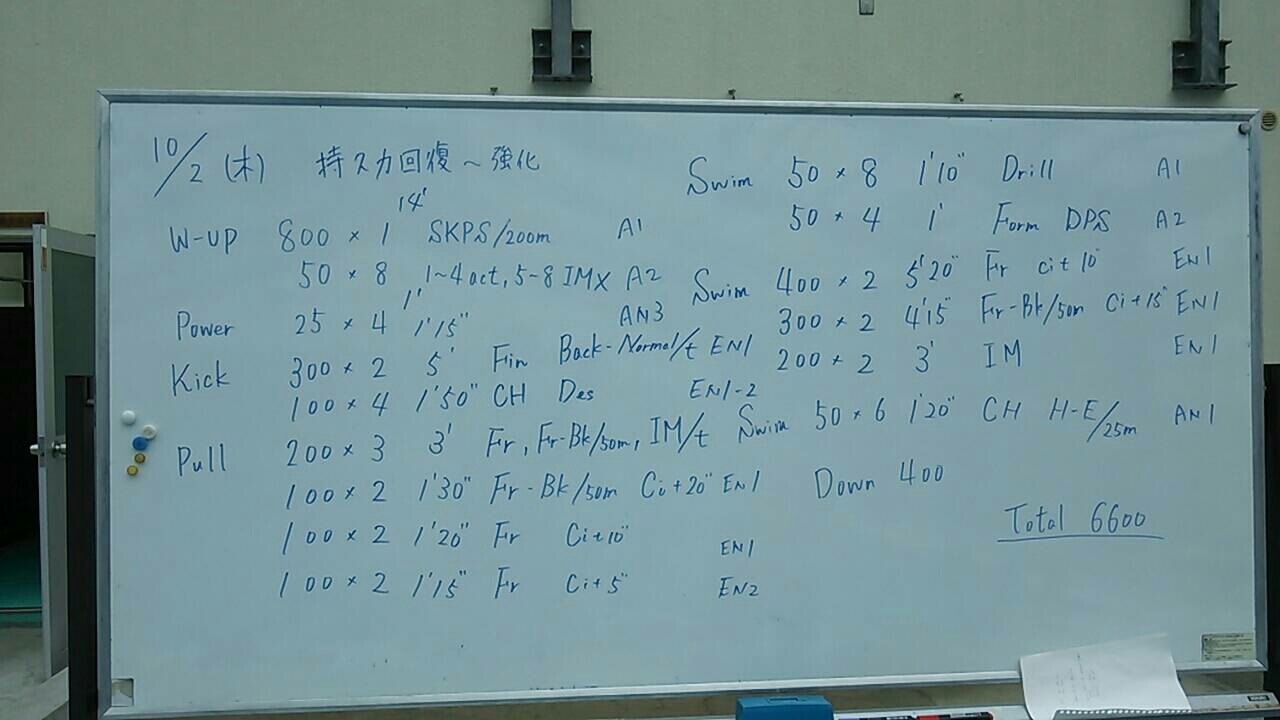 10/2 (木) 持久力回復～強化
W-UP 800 × 1 14' SKPS/200m A1
50 × 8 1' 1~4 oct, 5-8 IMX A2
Power 25 × 4 1'15" AN3
Kick 300 × 2 5' Fin Back-Normal/t EN1
100 × 4 1'50" CH Des EN1-2
Pull 200 × 3 3' Fr, Fr-Bk/50m, IM/t
100 × 2 1'30" Fr-Bk/50m Ci+20" EN1
100 × 2 1'20" Fr Ci+10" EN1
100 × 2 1'15" Fr Ci+5" EN2
Swim 50 × 8 1'10" Drill A1
50 × 4 1' Form DPS A2
Swim 400 × 2 5'20" Fr Ci+10" EN1
300 × 2 4'15" Fr-Bk/50m Ci+15" EN1
200 × 2 3' IM EN1
Swim 50 × 6 1'20" CH H-E/25m AN1
Down 400
Total 6600